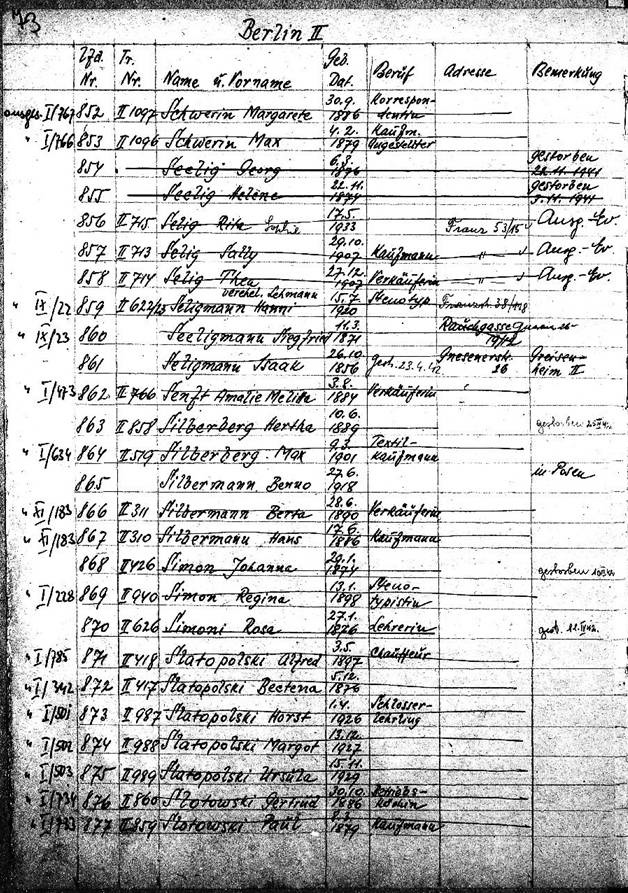 73
Berlin II
Lfd. Nr. Tr. Nr. Name u. Vorname Geb. Dat. Beruf Adresse Bemerkung
ausges. I/767 852 II 1097 Schwerin Margarete 30.9. 1886 Korrespondentin
" I/766 853 II 1096 Schwerin Max 4.2. 1879 Kaufm. Angestellter
854 Seelig Georg 6.8. gestorben
855 Seelig Helene 22.11. 1874 gestorben
856 II 715 Selig Rita Sophie 17.5. 1933 Franz 53/15 Ausg.-Ev.
857 II 713 Selig Sally 29.10. 1907 Kaufmann " Ausg.-Ev.
858 II 714 Selig Thea 27.12. 1907 Verkäuferin " Ausg.-Ev.
verehel. Lehmann
" IX/22 859 II 622/23 Seligmann Hanni 15.7. 1920 Stenotyp.
" IX/23 860 Seeligmann Siegfried 11.3. 1871 Rauchgasse
861 Seligmann Isaak 26.10. 1856 gest. 23.4.42 Gnesenerstr. 26 Greisenheim II
" I/473 862 II 766 Senft Amalie Melitta 3.8. 1884 Verkäuferin
863 II 858 Silberberg Hertha 10.6. 1889 gestorben
" I/634 864 II 519 Silberberg Max 9.3. 1901 Textilkaufmann
865 Silbermann Benno 27.6. 1918 in Posen
" XI/183 866 II 311 Silbermann Berta 28.6. 1890 Verkäuferin
" XI/183 867 II 310 Silbermann Hans 17.6. 1886 Kaufmann
868 II 426 Simon Johanna 20.1. 1874 gestorben
" I/228 869 II 940 Simon Regina 13.1. 1898 Stenotypistin
870 II 626 Simoni Rosa 27.1. 1876 Lehrerin gest.
" I/785 871 II 418 Slatopolski Alfred 3.5. 1897 Chauffeur
" I/342 872 II 417 Slatopolski Beetena 5.12. 1876
" I/501 873 II 987 Slatopolski Horst 1.4. 1926 Schlosserlehrling
" I/502 874 II 988 Slatopolski Margot 13.12. 1927
" I/503 875 II 989 Slatopolski Ursula 15.11. 1929
" I/734 876 II 860 Slotowski Gertrud 30.10. 1886 Betriebsköchin
" I/733 877 II 859 Slotowski Paul 8.3. 1879 Kaufmann